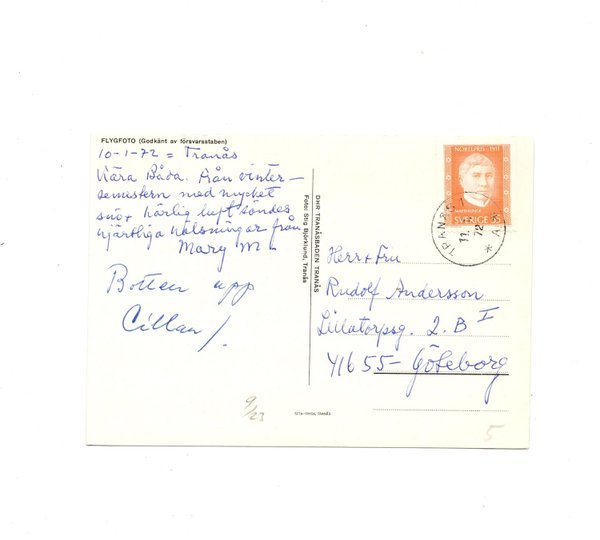 FLYGFOTO (Godkänt av försvarsstaben)
10-1-72 = Tranås
Kära Båda. Från vinter-
semestern med mycket
snö + härlig luft sändes
hjärtliga hälsningar från
Mary M.
Botten upp
Cillan/.
DHR TRANÅSBADEN TRANÅS
Foto: Stig Björklund, Tranås
NOBELPRIS 1911
SVERIGE
TRANÅS 1
11.
72
* A *
Herr + Fru
Rudolf Andersson
Lillatorpsg. 2. B I
41655 - Göteborg
9/23
TRANÅS
5